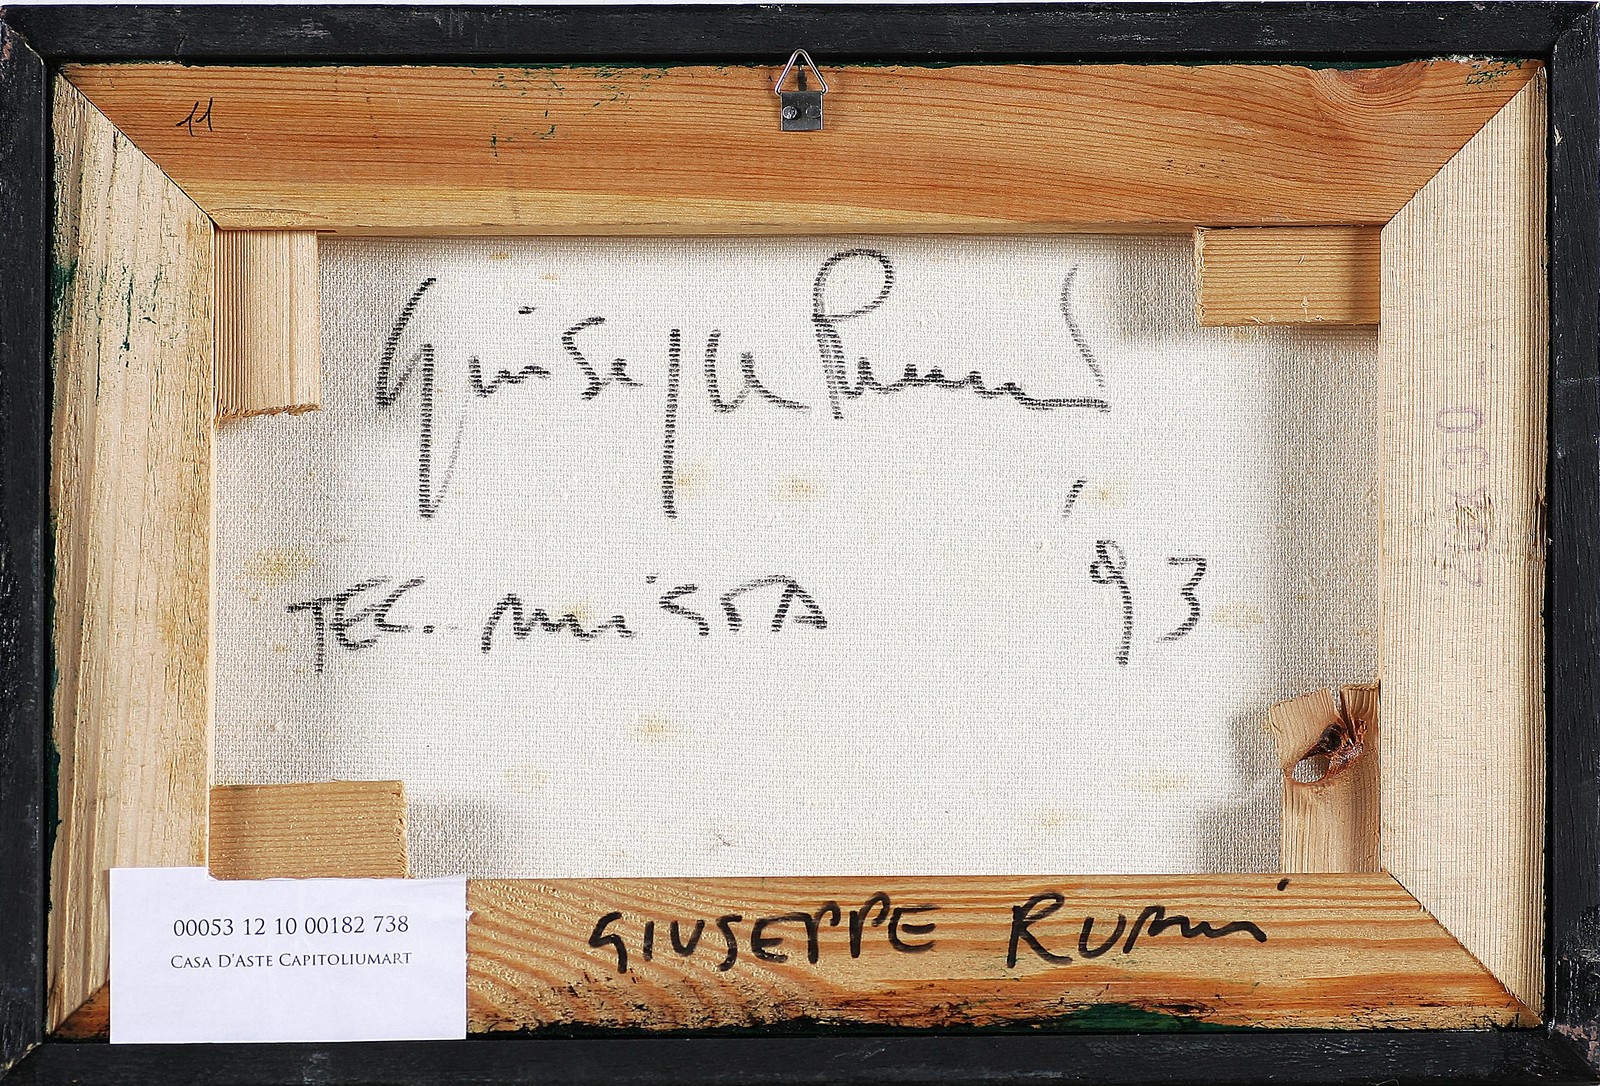 11
Giuseppe
'93
TEC. MISTA
GIUSEPPE
00053 12 10 00182 738
CASA D'ASTE CAPITOLIUMART